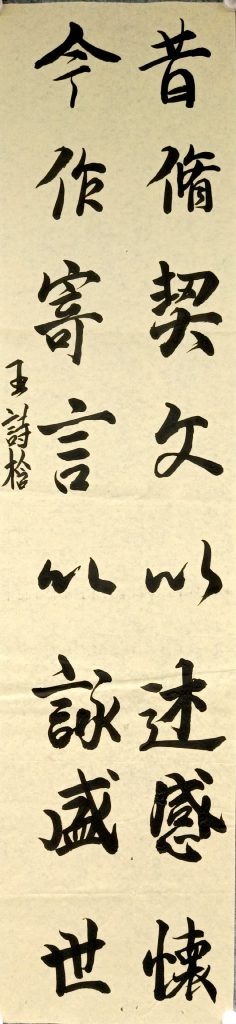 昔脩契文以述感懷
今作寄言以詠盛世
王詩梒